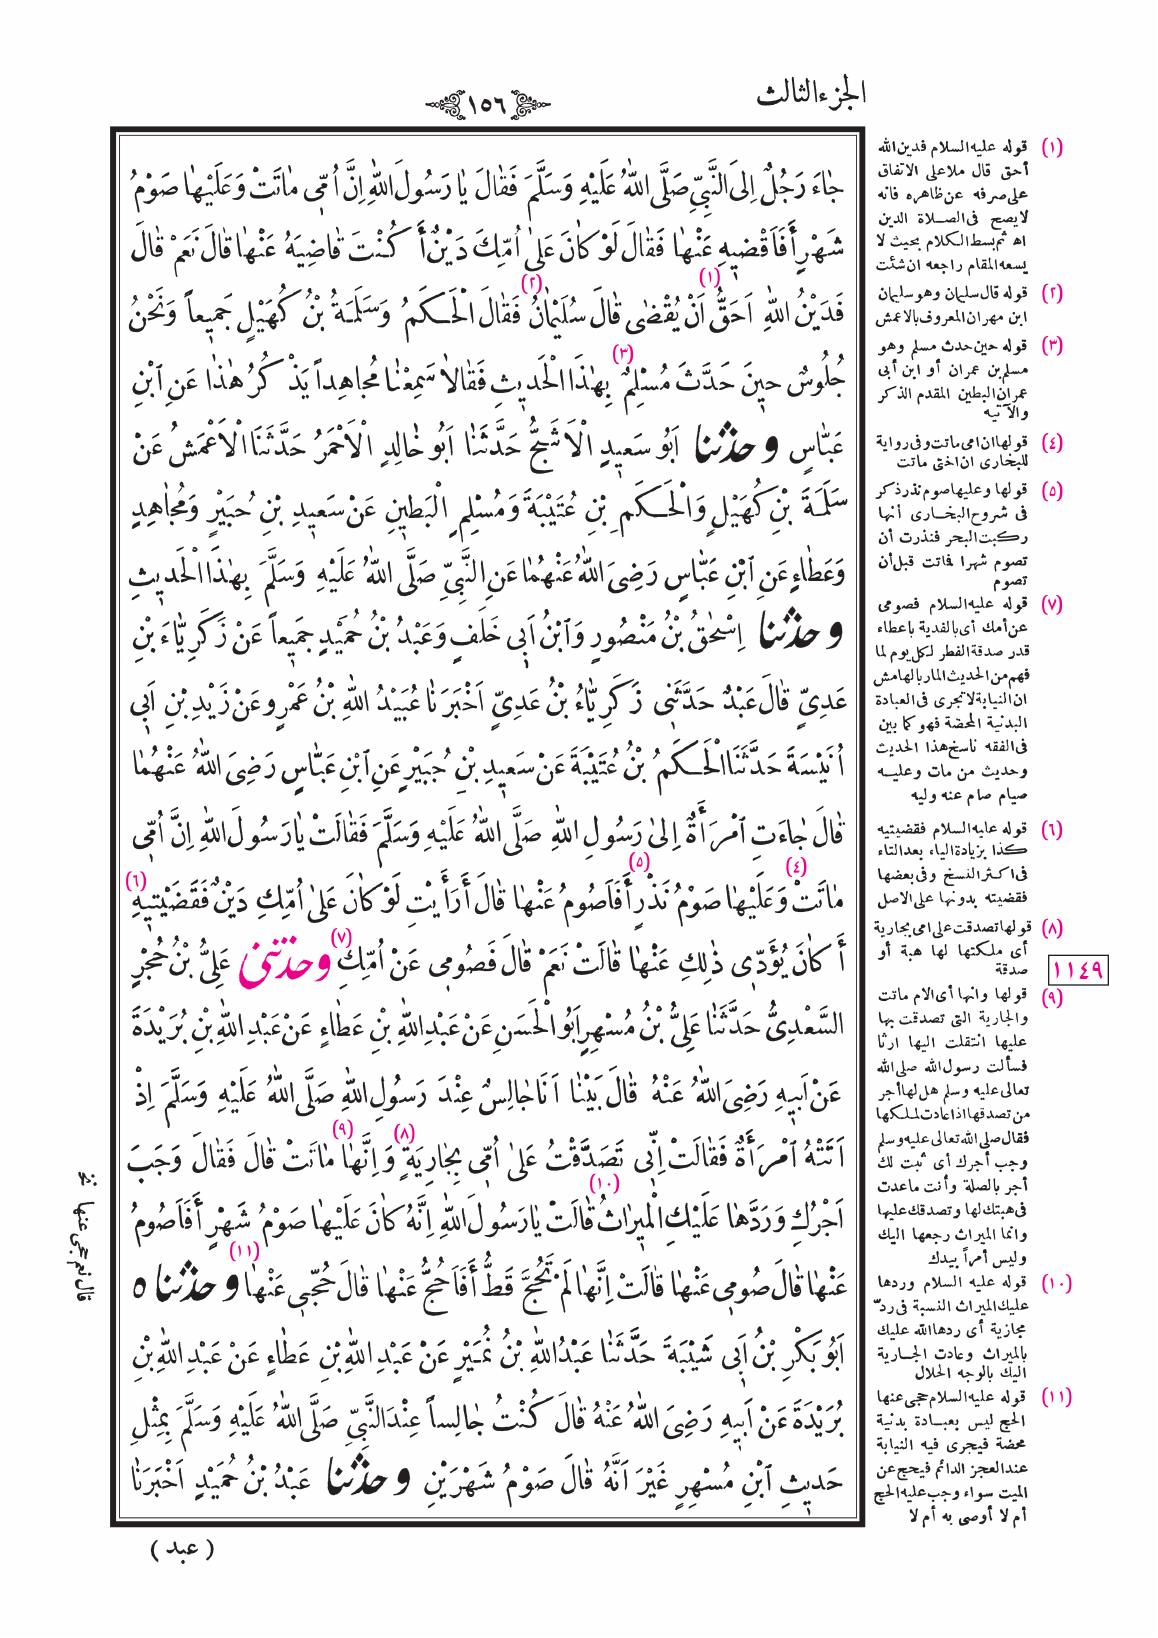 الجزء الثالث
١٥٦
جَاءَ رَجُلٌ اِلَى النَّبِيِّ صَلَّى اللّٰهُ عَلَيْهِ وَسَلَّمَ فَقَالَ يَا رَسُولَ اللّٰهِ اِنَّ اُمِّي مَاتَتْ وَعَلَيْهَا صَوْمُ
شَهْرٍ أَفَاَقْضِيهِ عَنْهَا فَقَالَ لَوْ كَانَ عَلٰى اُمِّكَ دَيْنٌ أَ كُنْتَ قَاضِيَهُ عَنْهَا قَالَ نَعَمْ قَالَ
فَدَيْنُ اللّٰهِ اَحَقُّ (١) اَنْ يُقْضٰى قَالَ سُلَيْمَانُ (٢) فَقَالَ الْحَكَمُ وَسَلَمَةُ بْنُ كُهَيْلٍ جَمِيعاً وَنَحْنُ
جُلُوسٌ حِينَ حَدَّثَ مُسْلِمٌ (٣) بِهٰذَا الْحَدِيثِ فَقَالَا سَمِعْنَا مُجَاهِداً يَذْكُرُ هٰذَا عَنِ ابْنِ
عَبَّاسٍ وحدثنا اَبُو سَعِيدٍ الْاَشَجُّ حَدَّثَنَا اَبُو خَالِدٍ الْاَحْمَرُ حَدَّثَنَا الْاَعْمَشُ عَنْ
سَلَمَةَ بْنِ كُهَيْلٍ وَالْحَكَمِ بْنِ عُتَيْبَةَ وَمُسْلِمٍ الْبَطِينِ عَنْ سَعِيدِ بْنِ جُبَيْرٍ وَمُجَاهِدٍ
وَعَطَاءٍ عَنِ ابْنِ عَبَّاسٍ رَضِىَ اللّٰهُ عَنْهُمَا عَنِ النَّبِيِّ صَلَّى اللّٰهُ عَلَيْهِ وَسَلَّمَ بِهٰذَا الْحَدِيثِ
وحدثنا اِسْحٰقُ بْنُ مَنْصُورٍ وَابْنُ اَبِي خَلَفٍ وَعَبْدُ بْنُ حُمَيْدٍ جَمِيعاً عَنْ زَكَرِيَّاءَ بْنِ
عَدِيٍّ قَالَ عَبْدٌ حَدَّثَنِي زَكَرِيَّاءُ بْنُ عَدِيٍّ اَخْبَرَنَا عُبَيْدُ اللّٰهِ بْنُ عَمْرٍو عَنْ زَيْدِ بْنِ اَبِي
اُنَيْسَةَ حَدَّثَنَا الْحَكَمُ بْنُ عُتَيْبَةَ عَنْ سَعِيدِ بْنِ جُبَيْرٍ عَنِ ابْنِ عَبَّاسٍ رَضِىَ اللّٰهُ عَنْهُمَا
قَالَ جَاءَتِ امْرَأَةٌ اِلٰى رَسُولِ اللّٰهِ صَلَّى اللّٰهُ عَلَيْهِ وَسَلَّمَ فَقَالَتْ يَا رَسُولَ اللّٰهِ اِنَّ اُمِّي
مَاتَتْ (٤) وَعَلَيْهَا صَوْمُ نَذْرٍ (٥) أَفَاَصُومُ عَنْهَا قَالَ أَرَأَيْتِ لَوْ كَانَ عَلٰى اُمِّكِ دَيْنٌ فَقَضَيْتِيهِ (٦)
أَ كَانَ يُؤَدِّي ذٰلِكِ عَنْهَا قَالَتْ نَعَمْ قَالَ فَصُومِي عَنْ اُمِّكِ (٧) وحدثني عَلِيُّ بْنُ حُجْرٍ
السَّعْدِيُّ حَدَّثَنَا عَلِيُّ بْنُ مُسْهِرٍ اَبُو الْحَسَنِ عَنْ عَبْدِ اللّٰهِ بْنِ عَطَاءٍ عَنْ عَبْدِ اللّٰهِ بْنِ بُرَيْدَةَ
عَنْ اَبِيهِ رَضِىَ اللّٰهُ عَنْهُ قَالَ بَيْنَا اَنَا جَالِسٌ عِنْدَ رَسُولِ اللّٰهِ صَلَّى اللّٰهُ عَلَيْهِ وَسَلَّمَ اِذْ
اَتَتْهُ امْرَأَةٌ فَقَالَتْ اِنِّي تَصَدَّقْتُ عَلٰى اُمِّي بِجَارِيَةٍ (٨) وَاِنَّهَا (٩) مَاتَتْ قَالَ فَقَالَ وَجَبَ
اَجْرُكِ وَرَدَّهَا عَلَيْكِ الْمِيرَاثُ (١٠) قَالَتْ يَا رَسُولَ اللّٰهِ اِنَّهُ كَانَ عَلَيْهَا صَوْمُ شَهْرٍ أَفَاَصُومُ
عَنْهَا قَالَ صُومِي عَنْهَا قَالَتْ اِنَّهَا لَمْ تَحُجَّ قَطُّ أَفَاَحُجُّ عَنْهَا قَالَ حُجِّي عَنْهَا (١١) وحدثنا ٥
اَبُو بَكْرِ بْنُ اَبِي شَيْبَةَ حَدَّثَنَا عَبْدُ اللّٰهِ بْنُ نُمَيْرٍ عَنْ عَبْدِ اللّٰهِ بْنِ عَطَاءٍ عَنْ عَبْدِ اللّٰهِ بْنِ
بُرَيْدَةَ عَنْ اَبِيهِ رَضِىَ اللّٰهُ عَنْهُ قَالَ كُنْتُ جَالِساً عِنْدَ النَّبِيِّ صَلَّى اللّٰهُ عَلَيْهِ وَسَلَّمَ بِمِثْلِ
حَدِيثِ ابْنِ مُسْهِرٍ غَيْرَ اَنَّهُ قَالَ صَوْمُ شَهْرَيْنِ وحدثنا عَبْدُ بْنُ حُمَيْدٍ اَخْبَرَنَا
( عبد )
(١) قوله عليه السلام فدين الله
أحق قال ملا على الاتفاق
على صرفه عن ظاهره فانه
لا يصح فى الصلاة الدين
اه ثم بسط الكلام بحيث لا
يسعه المقام راجعه ان شئت
(٢) قوله قال سليمان وهو سليمان
ابن مهران المعروف بالاعمش
(٣) قوله حين حدث مسلم وهو
مسلم بن عمران أو ابن أبى
عمران البطين المقدم الذكر
والآتيه
(٤) قولها ان امى ماتت وفى رواية
للبخارى ان اختى ماتت
(٥) قولها وعليها صوم نذر ذكر
فى شروح البخارى أنها
ركبت البحر فنذرت أن
تصوم شهرا فماتت قبل أن
تصوم
(٧) قوله عليه السلام فصومى
عن أمك أى بالفدية باعطاء
قدر صدقة الفطر لكل يوم لما
فهم من الحديث المار بالهامش
ان النيابة لا تجرى فى العبادة
البدنية المحضة فهو كما بين
فى الفقه ناسخ هذا الحديث
وحديث من مات وعليه
صيام صام عنه وليه
(٦) قوله عليه السلام فقضيتيه
كذا بزيادة الياء بعد التاء
فى اكثر النسخ وفى بعضها
فقضيته بدونها على الاصل
(٨) قولها تصدقت على امى بجارية
أى ملكتها لها هبة أو
صدقة
(٩) قولها وانها أى الام ماتت
والجارية التى تصدقت بها
عليها انتقلت اليها ارثا
فسألت رسول الله صلى الله
تعالى عليه وسلم هل لها أجر
من تصدقها اذا عادت لملكها
فقال صلى الله تعالى عليه وسلم
وجب أجرك أى ثبت لك
أجر بالصلة وأنت ما عدت
فى هبتك لها وتصدقك عليها
وانما الميراث رجعها اليك
وليس أمراً بيدك
(١٠) قوله عليه السلام وردها
عليك الميراث النسبة فى ردّ
مجازية أى ردها الله عليك
بالميراث وعادت الجارية
اليك بالوجه الحلال
(١١) قوله عليه السلام حجى عنها
الحج ليس بعبادة بدنية
محضة فيجرى فيه النيابة
عند العجز الدائم فيحج عن
الميت سواء وجب عليه الحج
أم لا أوصى به أم لا
١١٤٩
قال نعم حجى عنها نخ